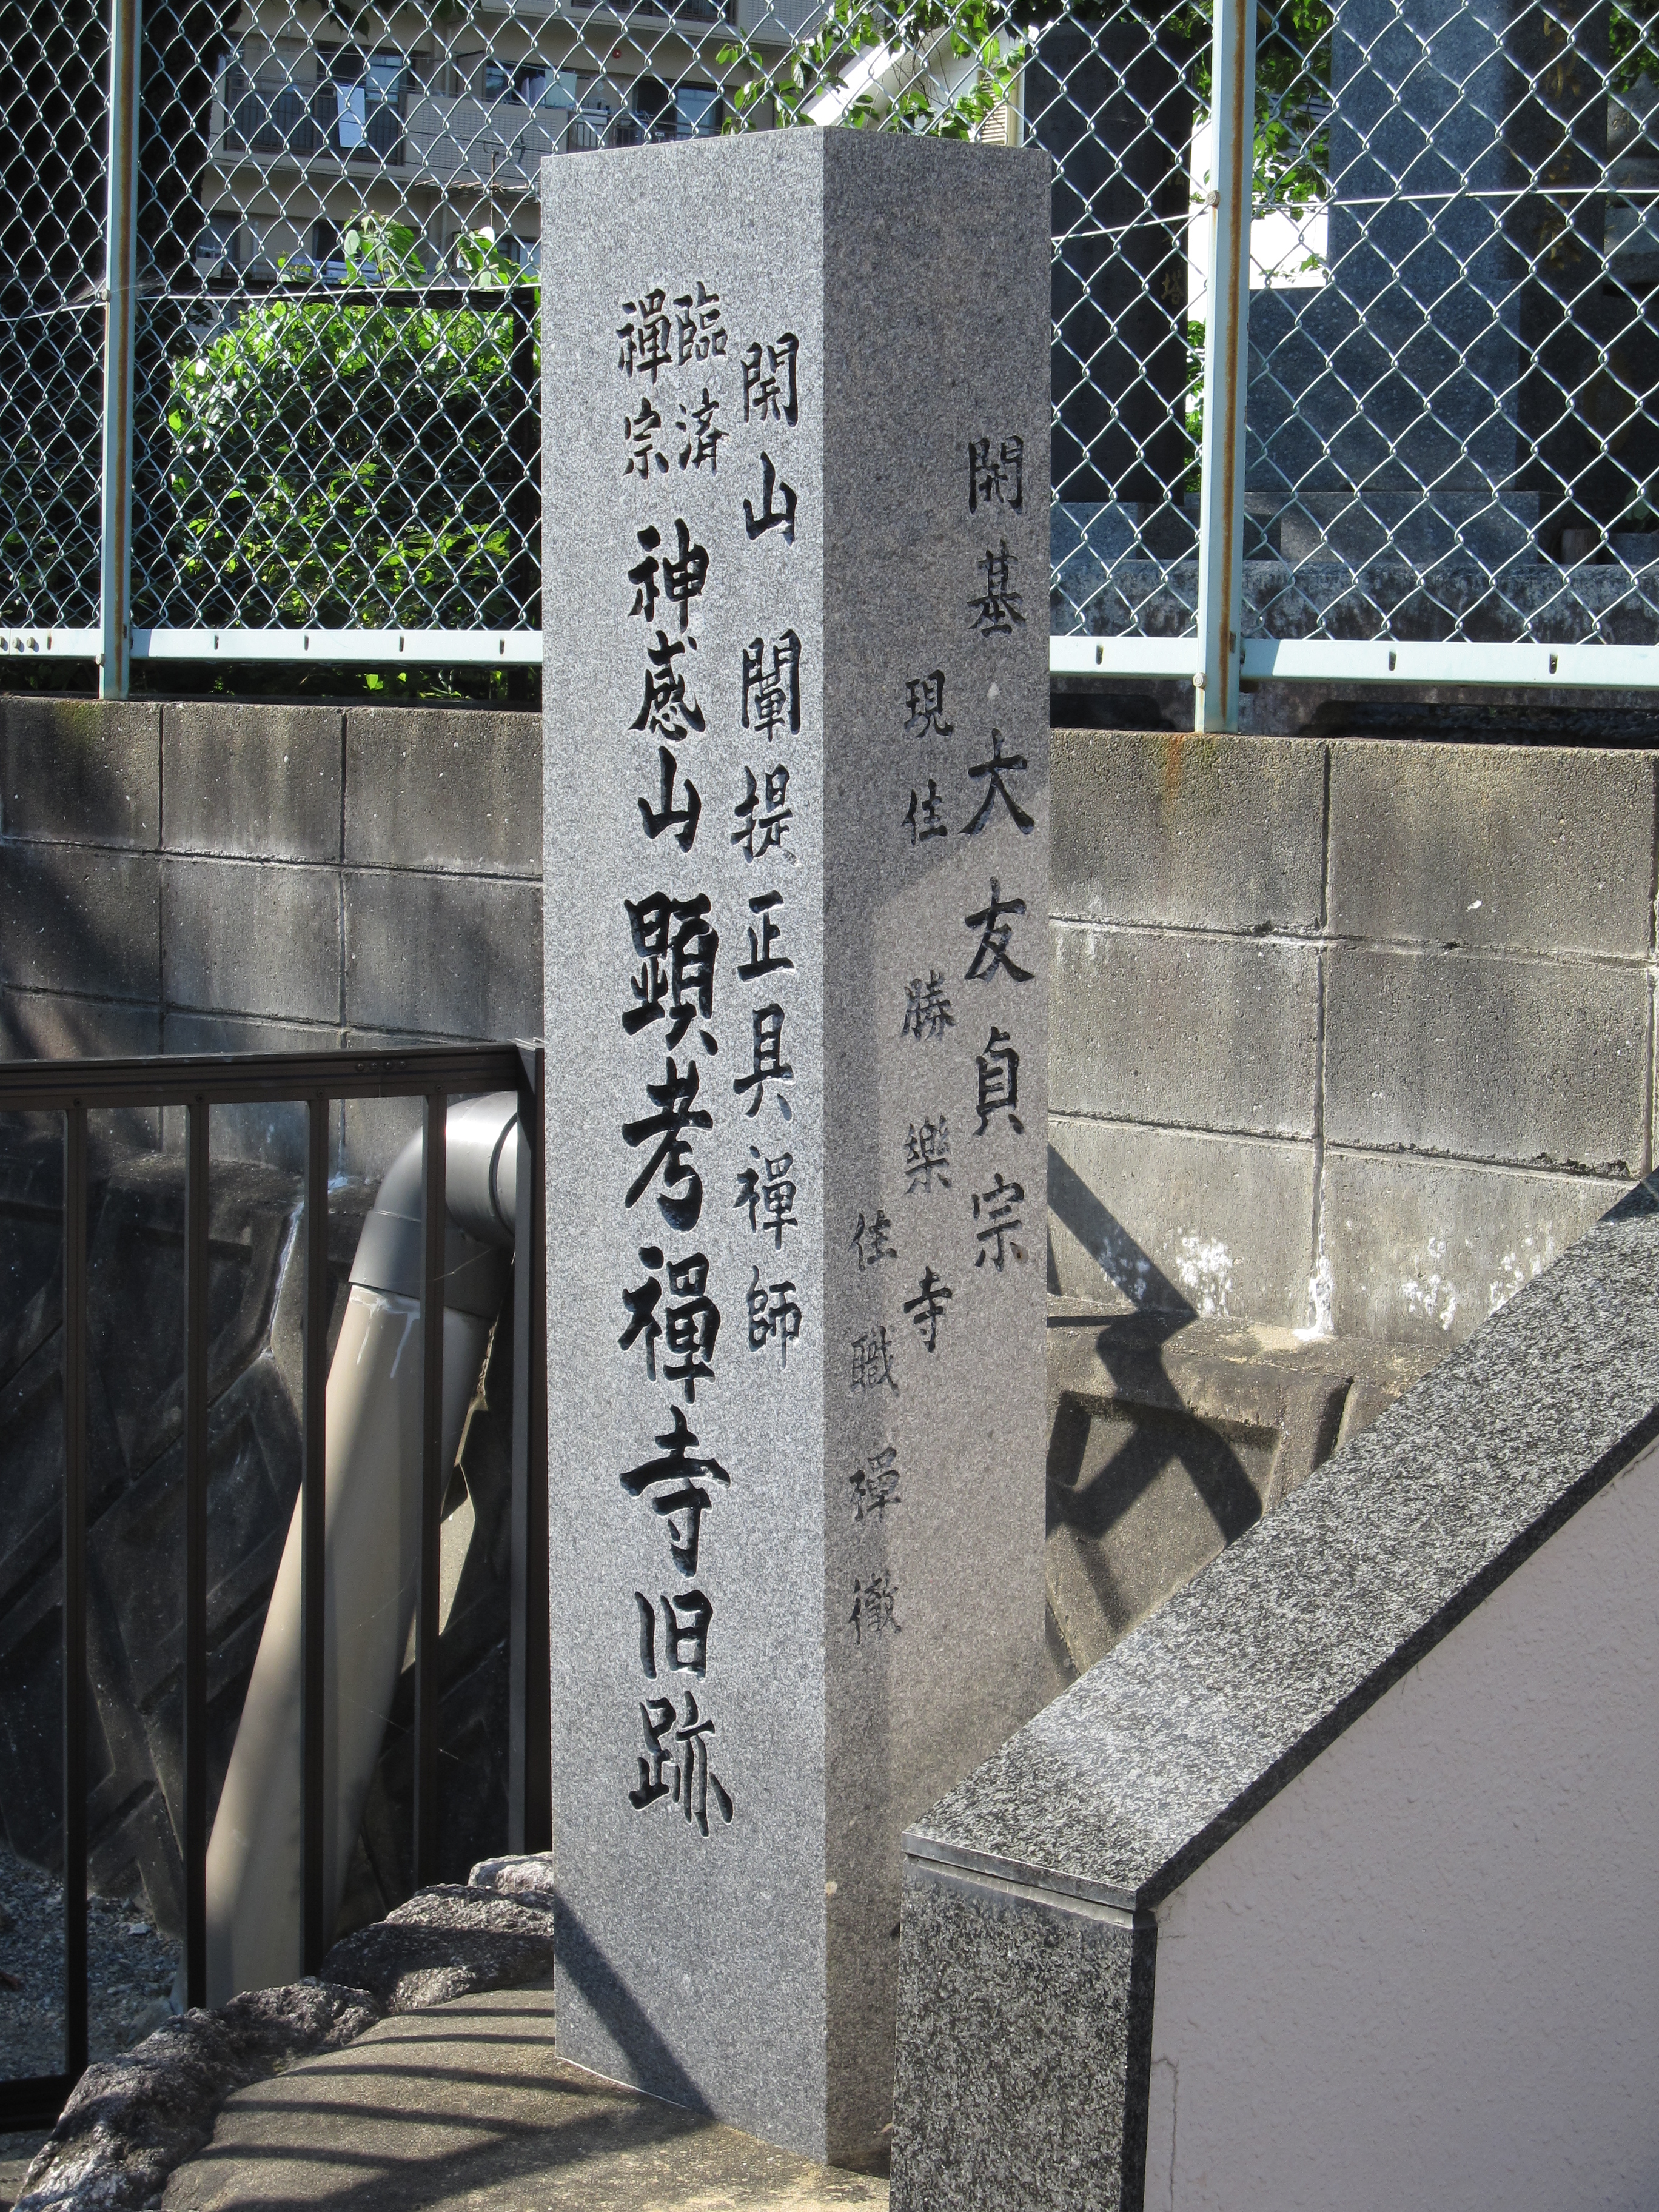 開山 闡提正具禪師
臨済
禪宗
神感山 顕考禪寺旧跡
開基 大友貞宗
現住 勝樂寺
住職 禪徹
塔